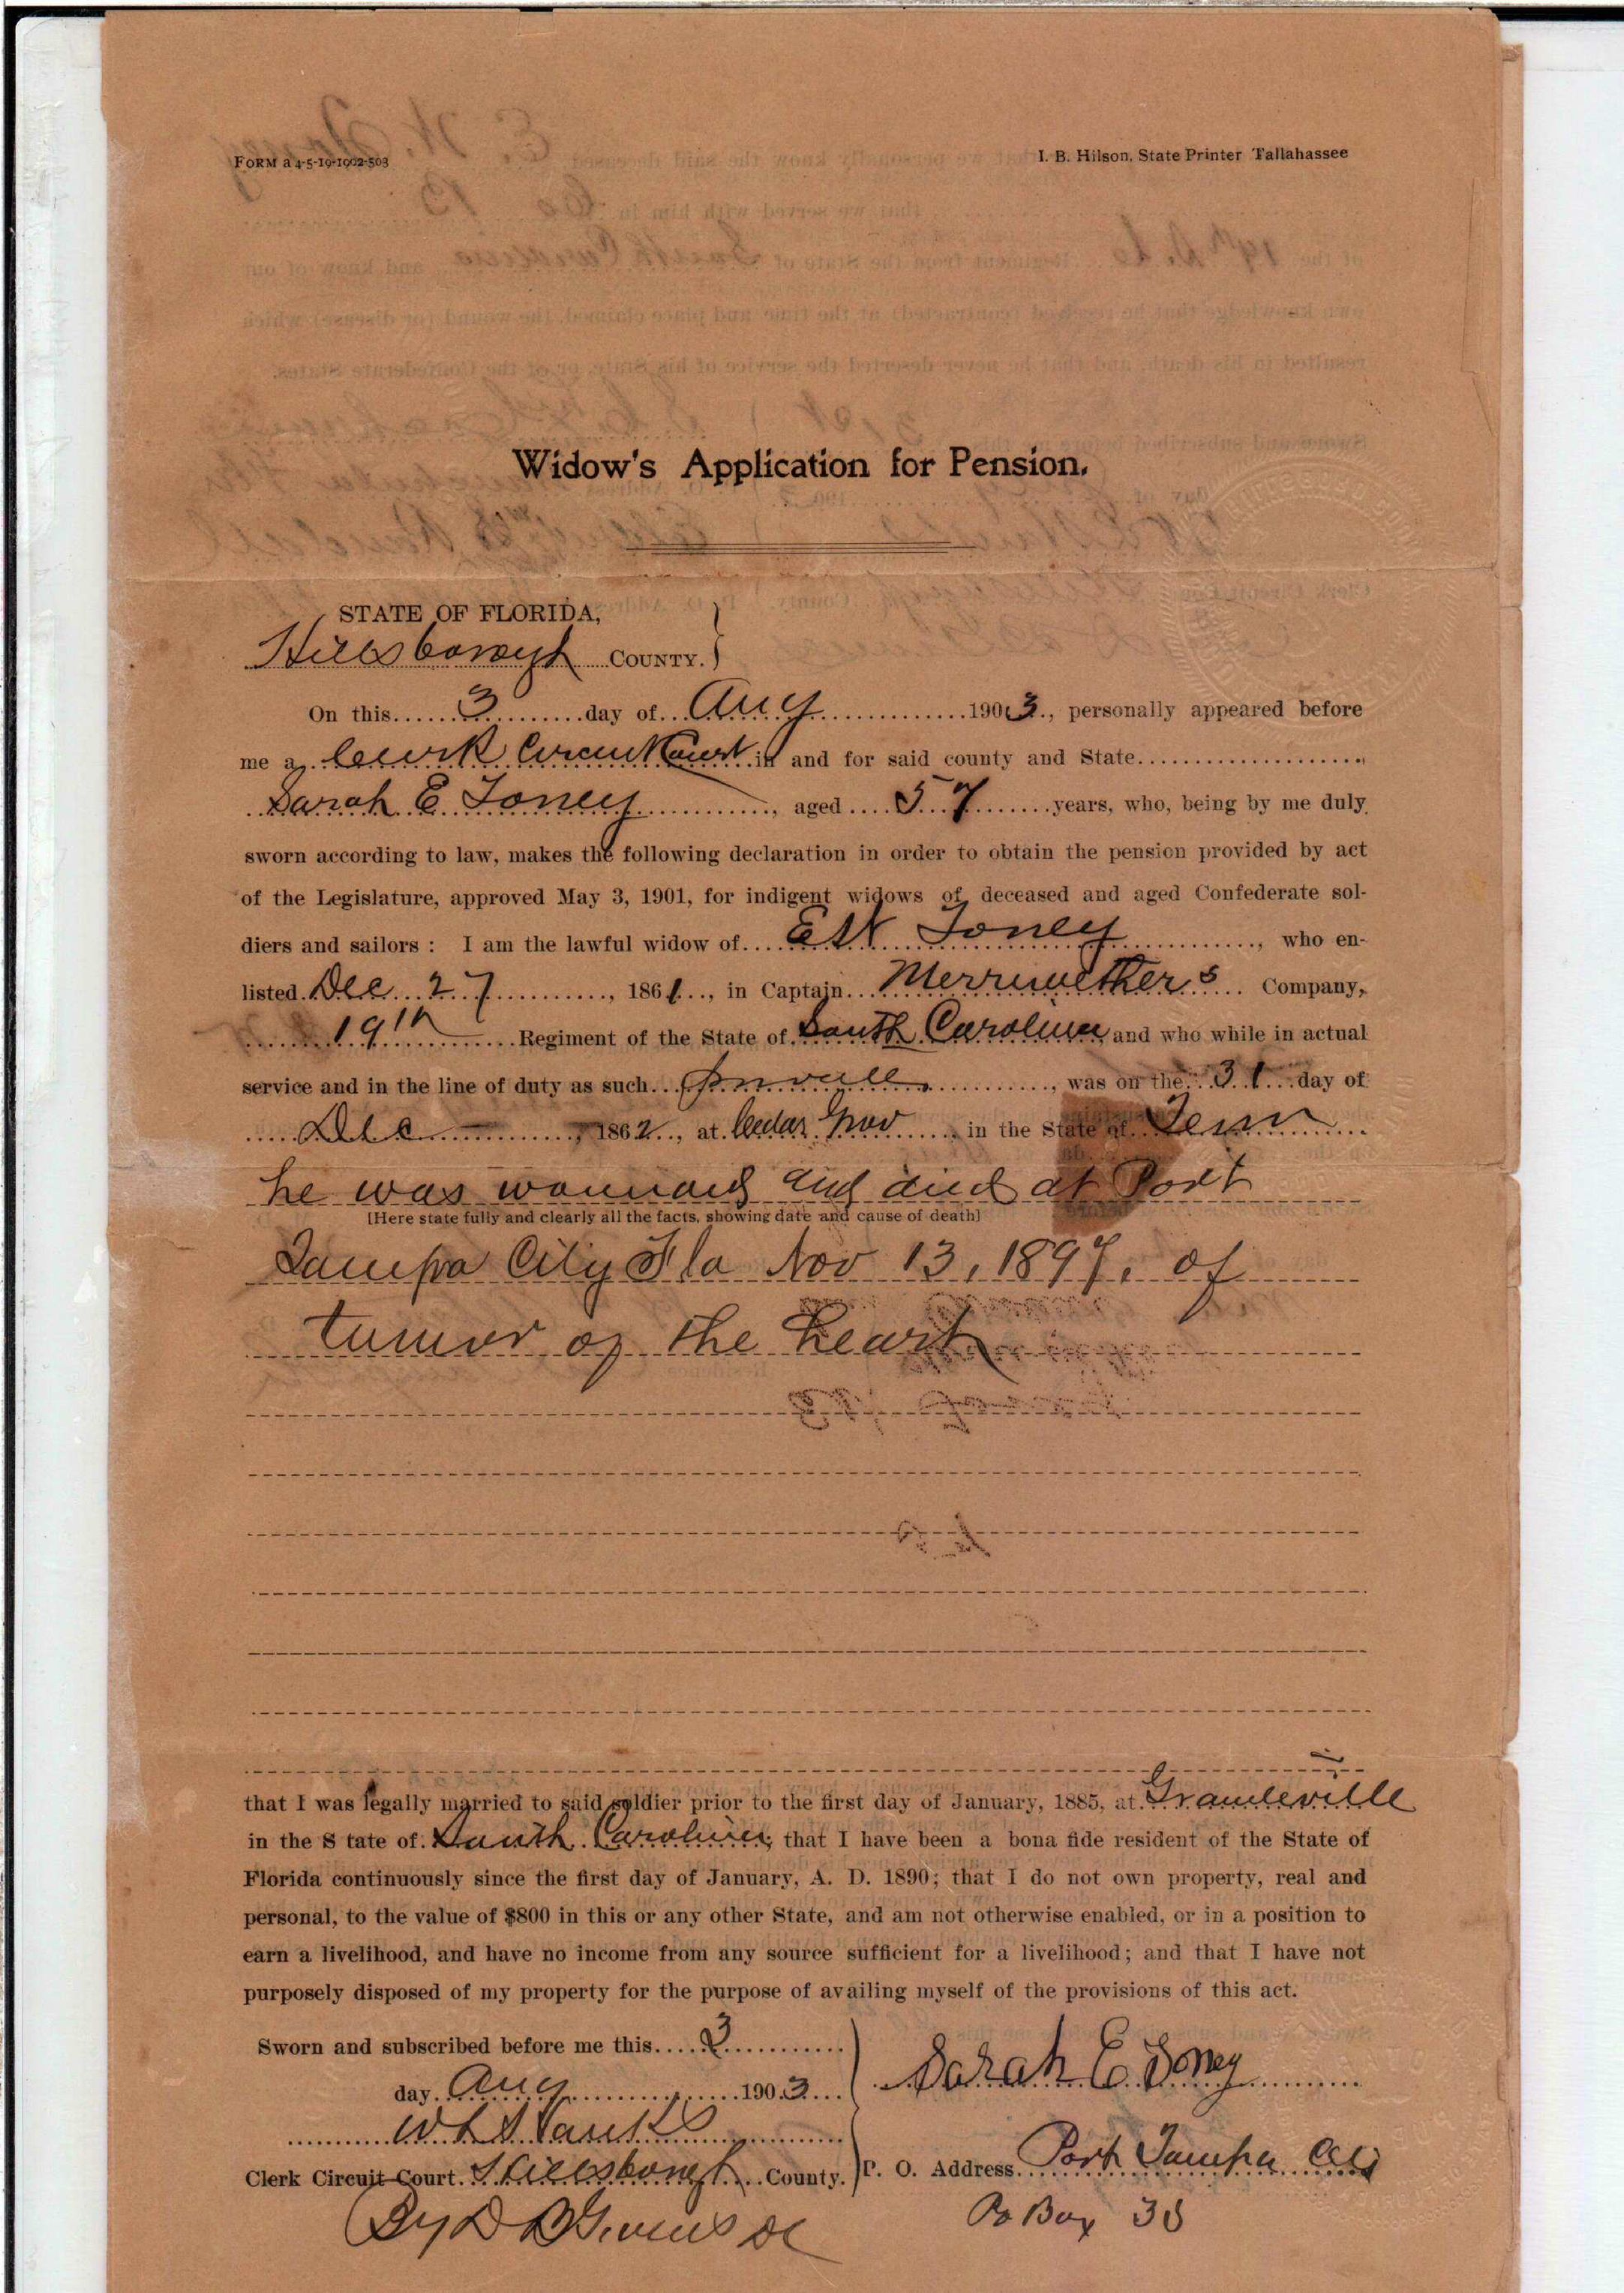 FORM a 4-5-19-1902-503
I. B. Hilson, State Printer Tallahassee
Widow's Application for Pension.
STATE OF FLORIDA,
Hillsborough COUNTY.
On this 3 day of Aug 1903, personally appeared before
me a Clerk Circuit Court in and for said county and State
Sarah E Toney, aged 57 years, who, being by me duly
sworn according to law, makes the following declaration in order to obtain the pension provided by act
of the Legislature, approved May 3, 1901, for indigent widows of deceased and aged Confederate sol-
diers and sailors : I am the lawful widow of E W Toney, who en-
listed Dec 27, 1861, in Captain Merriwethers Company,
19th Regiment of the State of South Carolina and who while in actual
service and in the line of duty as such, was on the 31 day of
Dec, 1862, at Cedar Grov in the State of Tenn
he was wounded and died at Port
[Here state fully and clearly all the facts, showing date and cause of death]
Tampa City Fla Nov 13, 1897, of
tumor of the heart
that I was legally married to said soldier prior to the first day of January, 1885, at Graniteville
in the S tate of South Carolina; that I have been a bona fide resident of the State of
Florida continuously since the first day of January, A. D. 1890; that I do not own property, real and
personal, to the value of $800 in this or any other State, and am not otherwise enabled, or in a position to
earn a livelihood, and have no income from any source sufficient for a livelihood; and that I have not
purposely disposed of my property for the purpose of availing myself of the provisions of this act.
Sworn and subscribed before me this 3
day Aug 1903
Sarah E Toney
Clerk Circuit Court Hillsborough County.
P. O. Address Port Tampa City
By D B Givens DC
Po Box 38